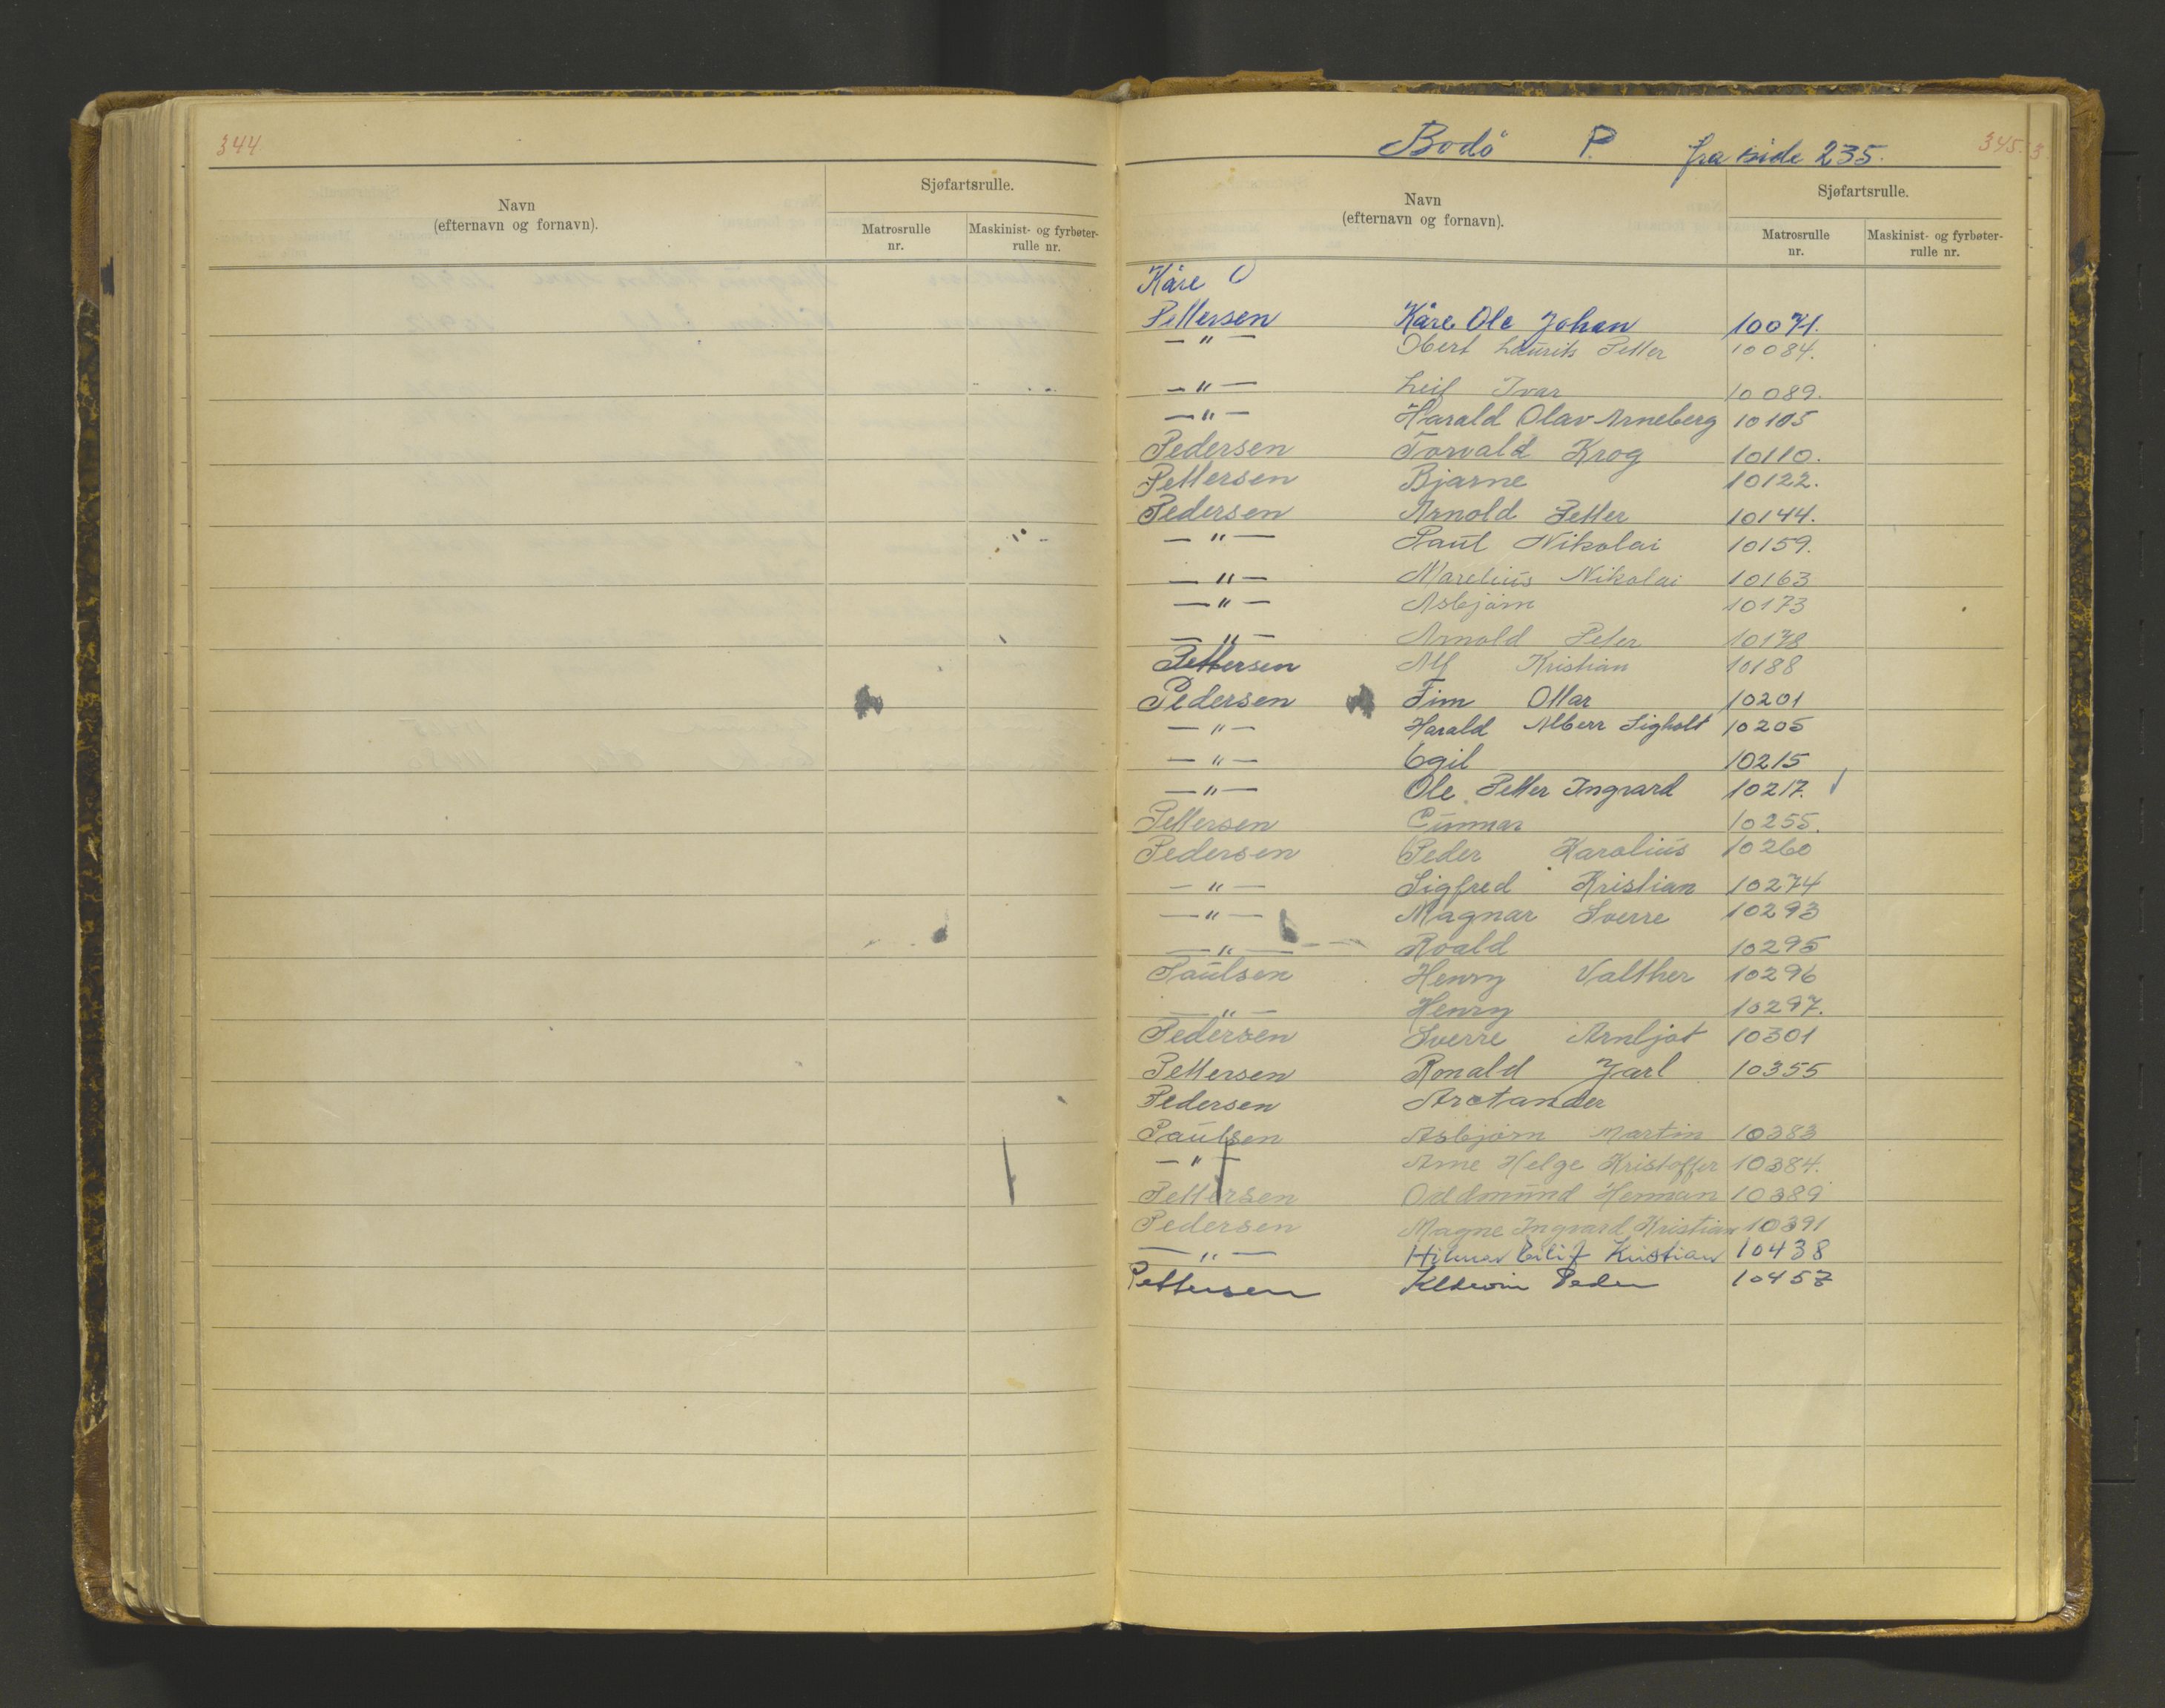 344
Navn
(efternavn og fornavn).
Sjøfartsrulle.
Matrosrulle
nr.
Maskinist- og fyrbøter-
rulle nr.
Bodö P. fra side 235. 345.
Navn
(efternavn og fornavn).
Sjøfartsrulle.
Matrosrulle
nr.
Maskinist- og fyrbøter-
rulle nr.
Kåre O
Pettersen Kåre Ole Johan 10071.
—"— Obert Laurits Petter 10084.
—"— Leif Ivar 10089.
—"— Harald Olav Arneberg 10105
Pedersen Torvald Krog 10110.
Pettersen Bjarne 10122.
Pedersen Arnold Petter 10144.
—"— Paul Nikolai 10159.
—"— Marelius Nikolai 10163
—"— Asbjörn 10173
—"— Arnold Peter 10178
Pettersen Alf Kristian 10188
Pedersen Finn Ottar 10201
—"— Harald Sigholt 10205
—"— Egil 10215
—"— Ole Petter Ingvard 10217.
Pettersen Gunnar 10255.
Pedersen Peder Karolius 10260
—"— Sigfred Kristian 10274
—"— Magnar Sverre 10293
—"— Roald 10295
Paulsen Henry Valther 10296
—"— Henry 10297.
Pedersen Sverre Arnljot 10301
Pettersen Ronald Jarl 10355
Pedersen Arctander
Paulsen Asbjörn Martin 10383
—"— Arne Helge Kristoffer 10384.
Pettersen Oddmund Herman 10389
Pedersen Magne Ingvard Kristian 10391
—"— Hilmar Eilif Kristian 10438
Pettersen Peder 10457